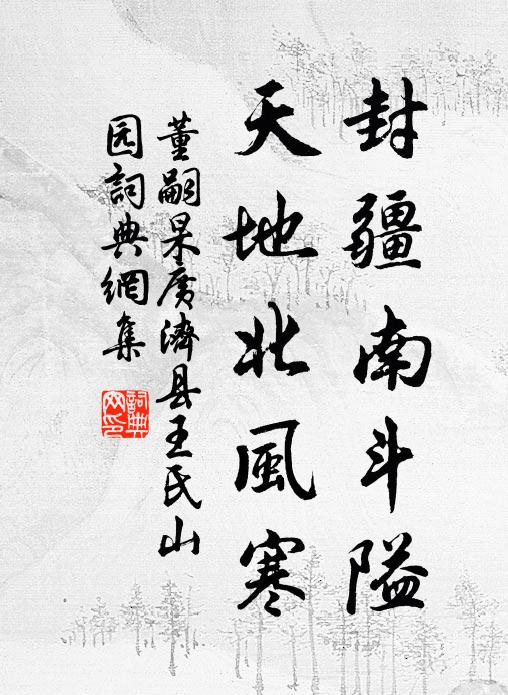 封疆南斗隘
天地北風寒
董嗣杲廣濟县王氏山
园詞典網集
詞典
网印